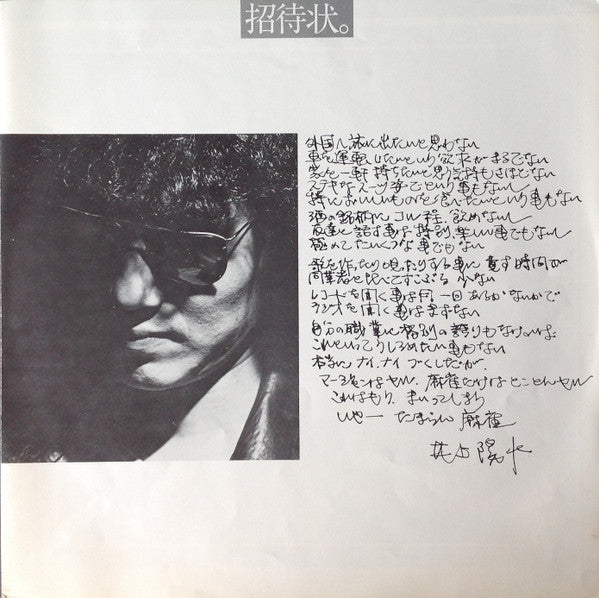 招待状。
外国へ旅に出たいと思わない
車を運転したいという欲求がまるでない
家を一軒持ちたいと思う気持もさほどない
ステキなスーツ姿でという事もない
特においしいものを食べたいという事もない
酒の銘柄にコル程、飲めないし
友達と話す事は特別、楽しい事でもないし
極めてたいくつな事でもない
歌を作ったり唄ったりする事に費す時間が
同業者と比べてすこぶる少ない
レコードを聞く事は月一回あるかないかで
ラジオを聞く事はまずない
自分の職業に格別の誇りもなければ
これといってうしろめたい事もない
本当にナイ、ナイづくしだが
マージャンはヤル、麻雀だけはとことんヤル
これはもう、まいってしまう
いやー たまらない 麻雀
井上陽水